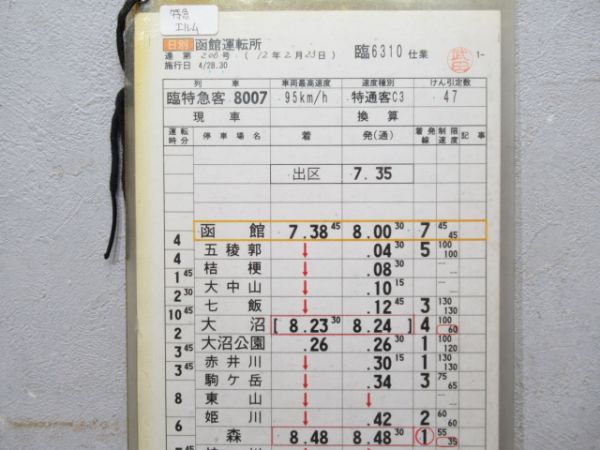 特急
エルム
日別 函館運転所
達 第 206 号 (12年2月23日) 臨6310 仕業 武田 1-
施行日 4/28.30
列 車 車両最高速度 速度種別 けん引定数
臨特急客 8007 95km/h 特通客C3 47
現 車 換 算
運転時分 停車場名 着 発(通) 着発線 制限速度 記事
出区 7.35
函 館 7.38 45 8.00 30 7 45 45
4
五稜郭 ↓ .04 30 5 100 100
4
桔 梗 ↓ .08 30 … …
1 45
大中山 ↓ .10 15 … …
2 30
七 飯 ↓ .12 45 3 130 130
10 45
大 沼 [ 8.23 30 8.24 ] 4 100 60
2
大沼公園 .26 .26 30 1 100 120
3 45
赤井川 ↓ .30 15 1 130 130
3 45
駒ケ岳 ↓ .34 3 75 65
8
東 山 ↓ ↓ … …
姫 川 ↓ .42 2 60 60
6
森 8.48 8.48 30 1 55 35